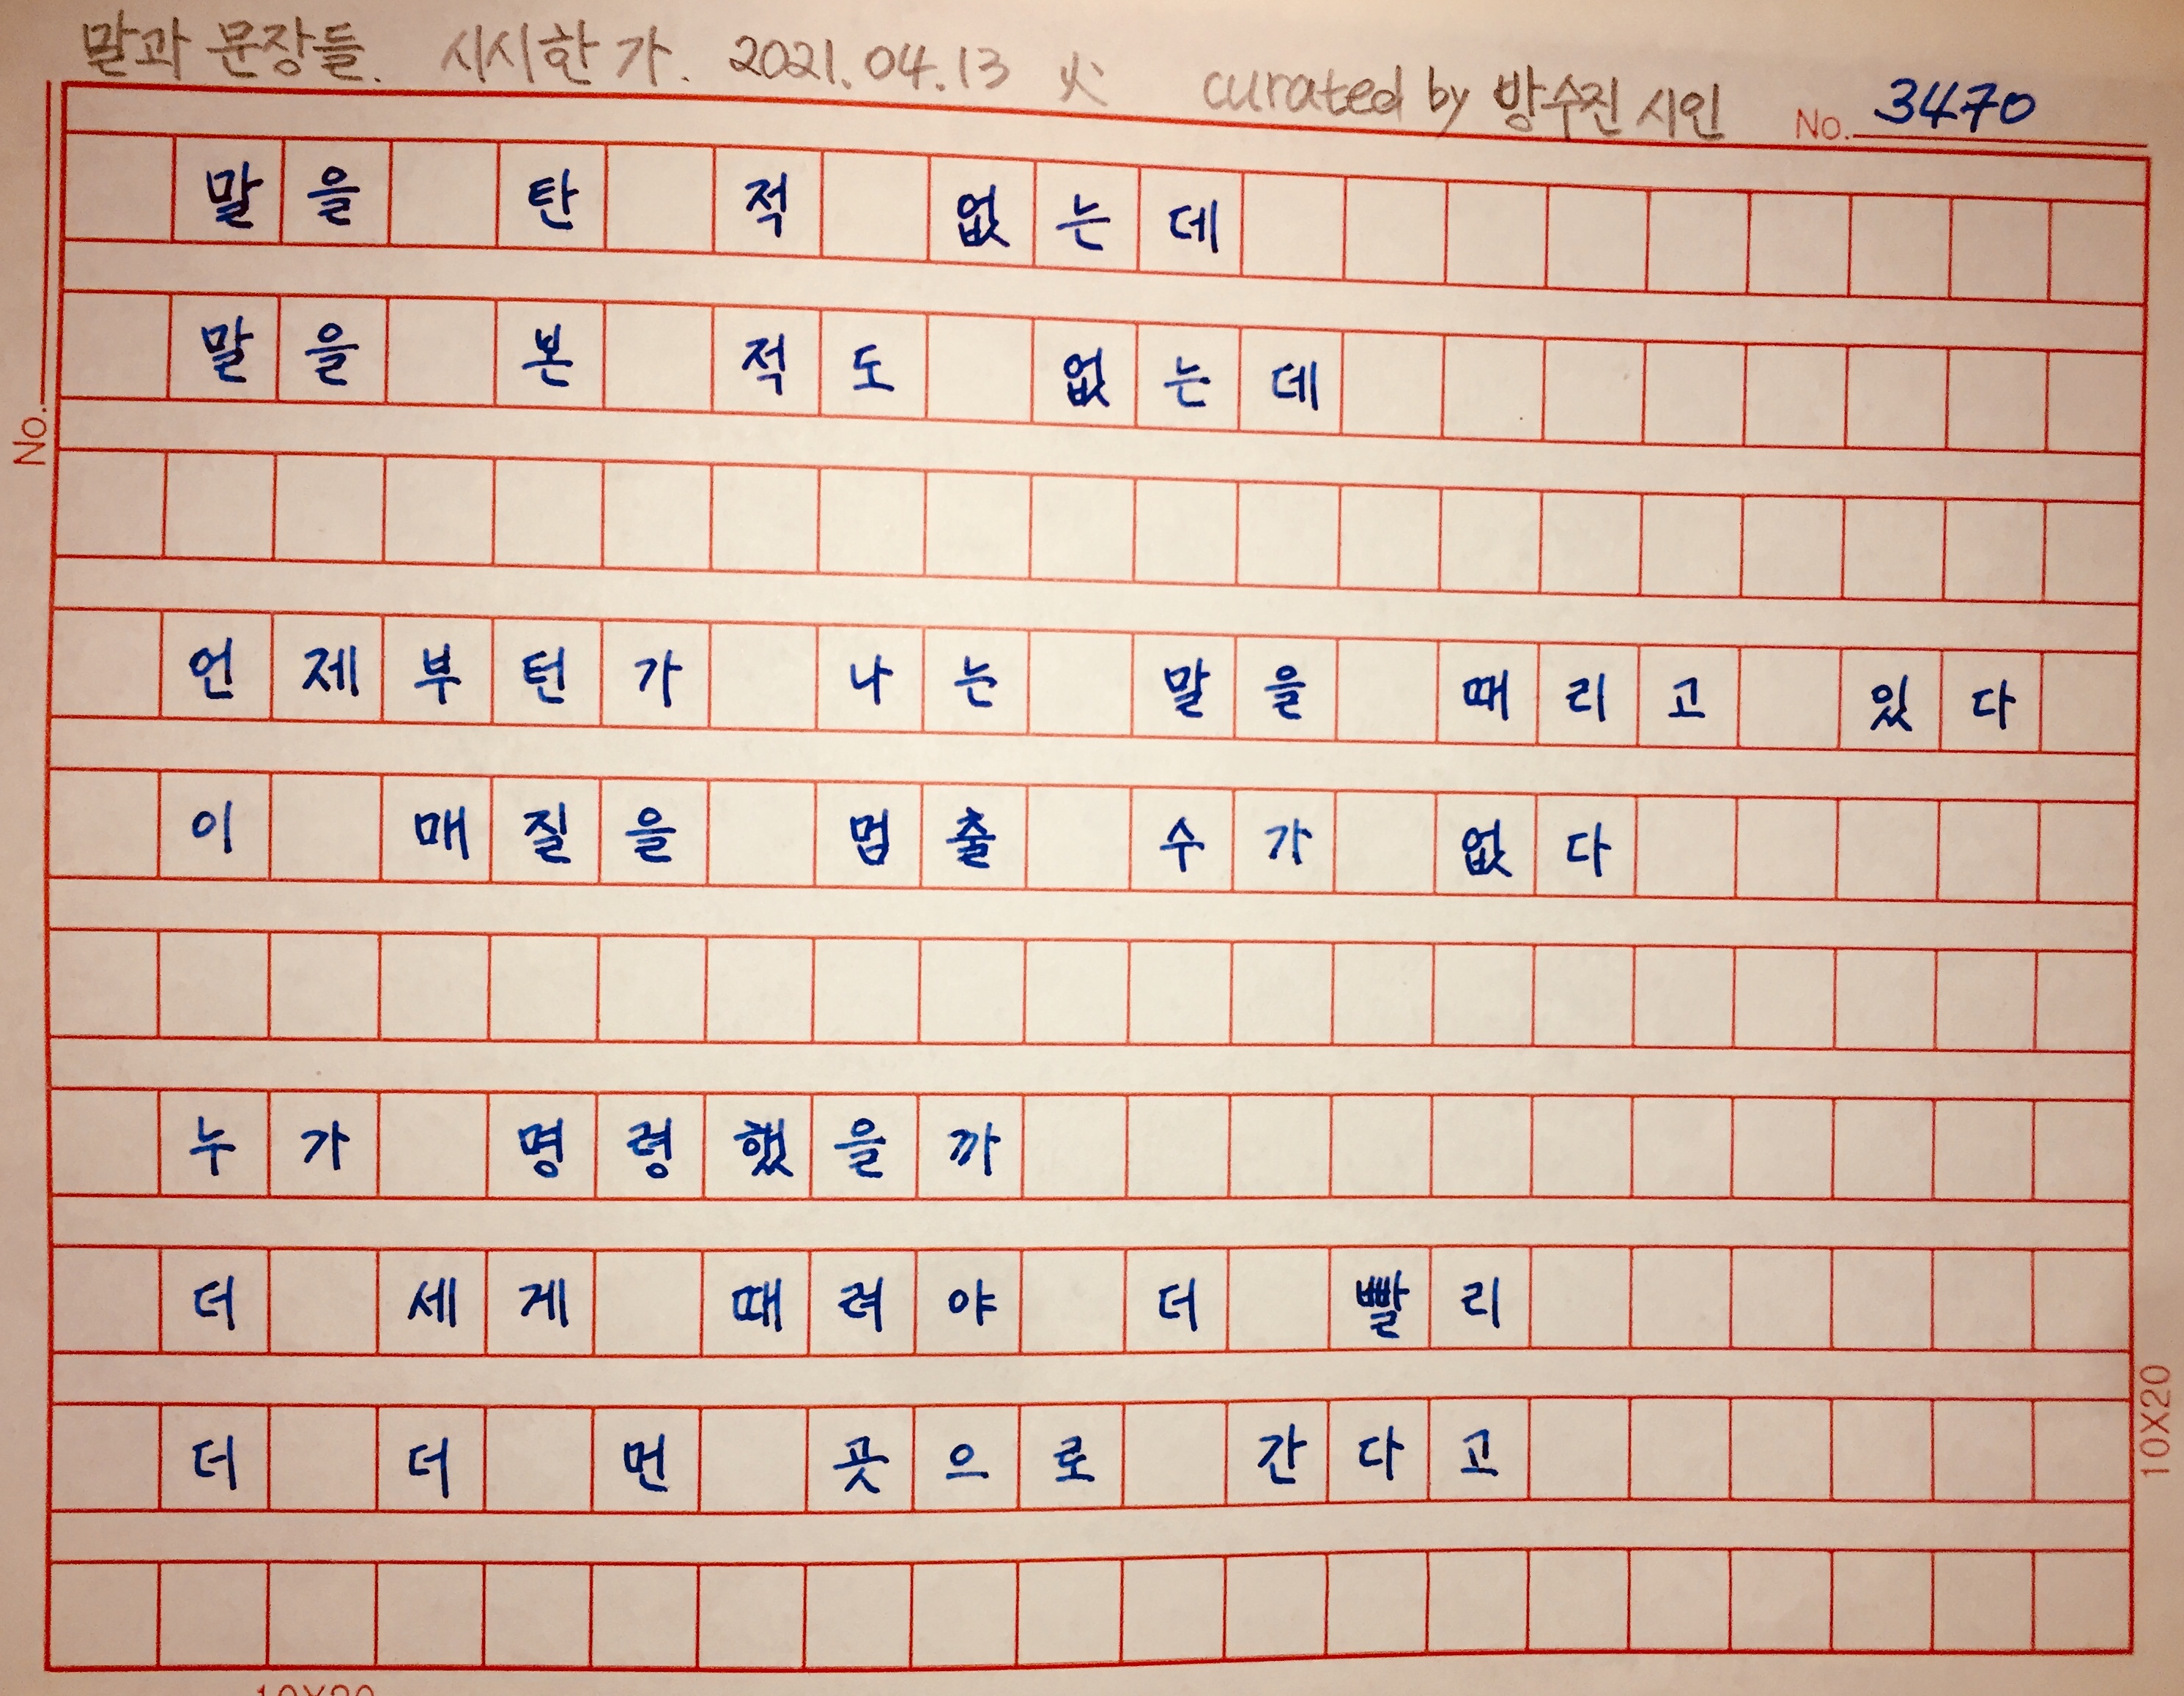 말과 문장들. 시시한 가. 2021.04.13 火 curated by 방수진 시인 No. 3470
말을 탄 적 없는데
말을 본 적도 없는데
No.
언제부턴가 나는 말을 때리고 있다
이 매질을 멈출 수가 없다
누가 명령했을까
더 세게 때려야 더 빨리
더 더 먼 곳으로 간다고
10X20
10X20